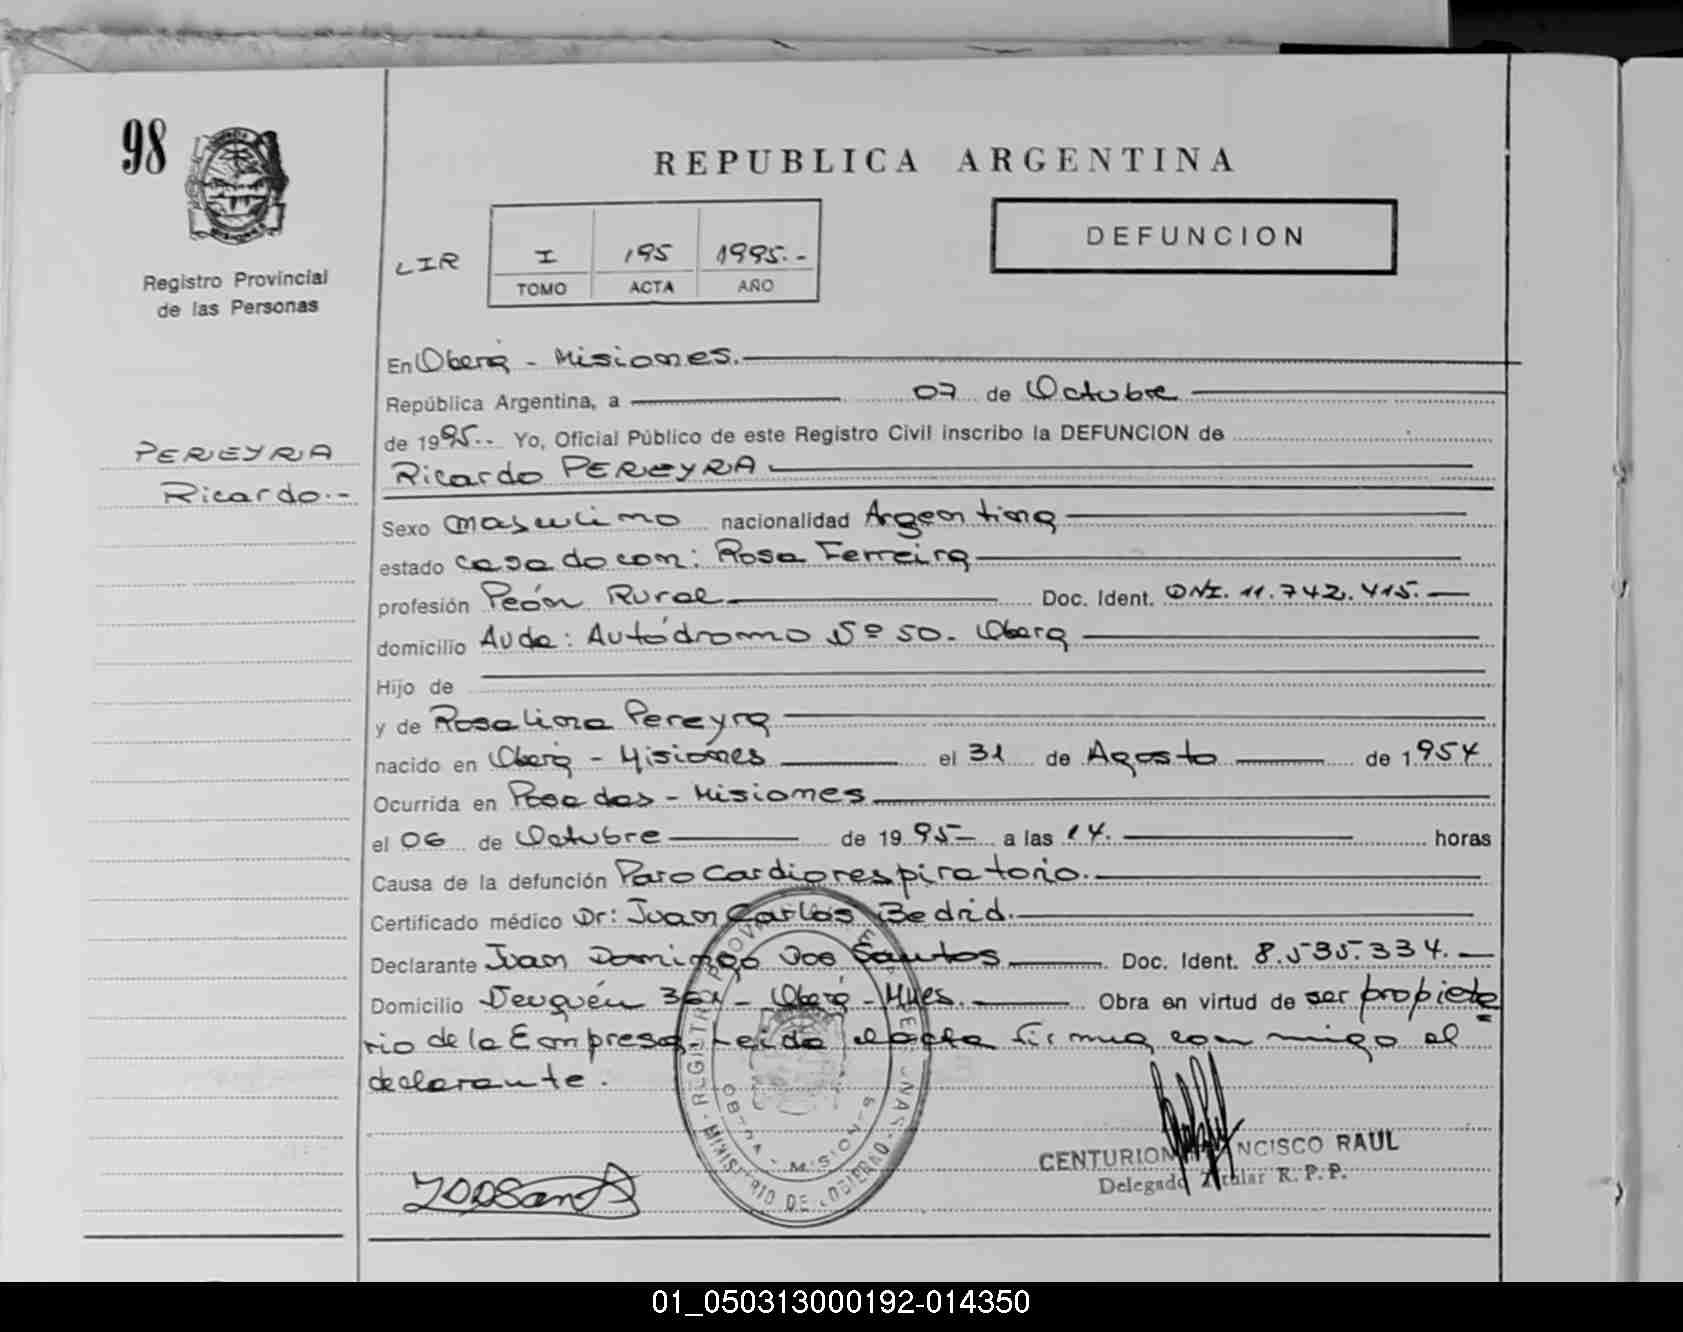 98
REPUBLICA ARGENTINA
DEFUNCION
Registro Provincial
de las Personas
LIR
I 195 1995.-
TOMO ACTA AÑO
PEREYRA
Ricardo.-
En Oberá - Misiones.
República Argentina, a 07 de Octubre
de 1995.. Yo, Oficial Público de este Registro Civil inscribo la DEFUNCION de
Ricardo PEREYRA
Sexo masculino nacionalidad Argentina
estado casado con: Rosa Ferreira
profesión Peón Rural Doc. Ident. DNI. 11.742.415.-
domicilio Avda: Autódromo Nº 50. Oberá
Hijo de
y de Rosalina Pereyra
nacido en Oberá - Misiones el 31 de Agosto de 1954
Ocurrida en Posadas - Misiones
el 06 de Octubre de 1995- a las 14. horas
Causa de la defunción Paro Cardiorespiratorio.
Certificado médico Dr: Juan Carlos Bedrid.
Declarante Juan Domingo Dos Santos Doc. Ident. 8.535.334.-
Domicilio Neuquén - Oberá - Mnes. Obra en virtud de ser propieta
rio de la Empresa. Leida el acta firma con migo el
declarante.
REGISTRO PROVINCIAL DE LAS PERSONAS
OBERA - MISIONES
MINISTERIO DE GOBIERNO
JDDSant
CENTURION NCISCO RAUL
Delegado Titular R. P. P.
01_050313000192-014350